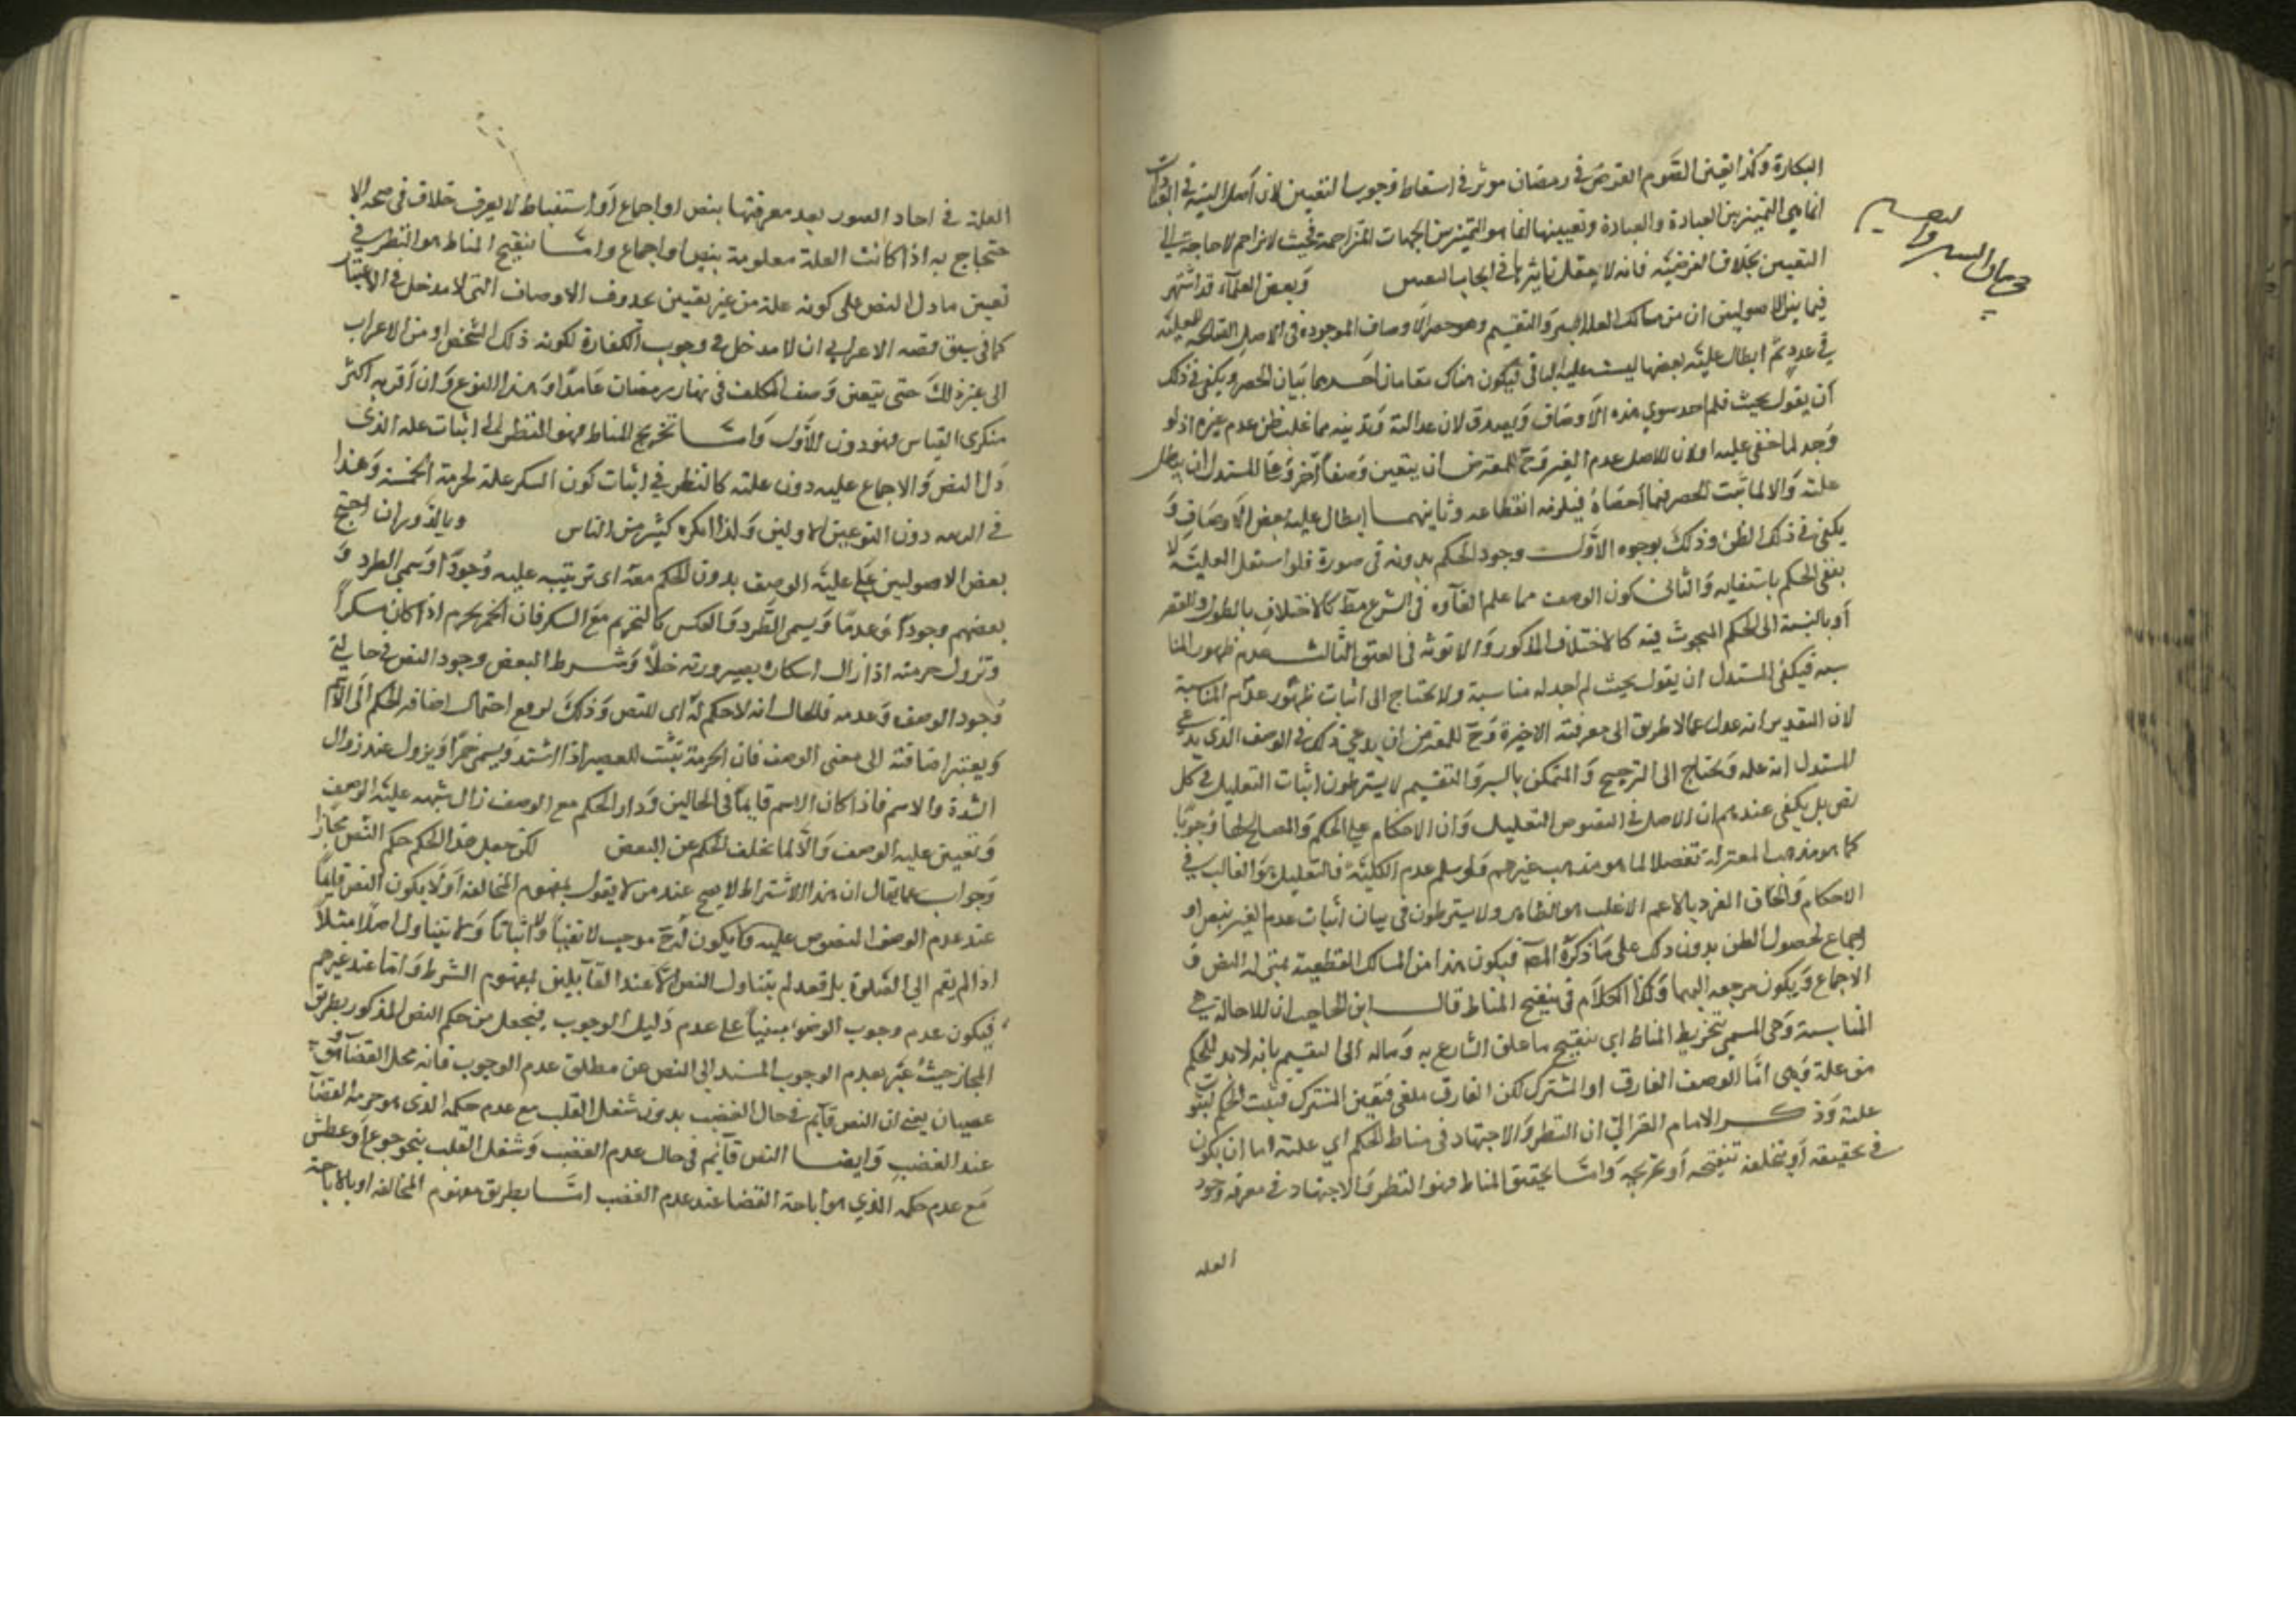 البكارة وكذا تعين الصوم الفرض في رمضان موثر في اسقاط وجوب التعيين لان اصل النية في العبادات
انما هي التمييز بين العبادة والعبادة وتعيينها انما هو التمييز بين الجهات المتزاحمة فحيث لا تزاحم لا حاجة الى
التعيين بخلاف الفرضية فانه لا يعقل تاثيرها في ايجاب التعيين وبعض العلماء قد اشتهر
فيما بين الاصوليين ان من مسالك العلة السبر والتقسيم وهو حصر الاوصاف الموجودة في الاصل الصالحة للعلية
في عدد ثم ابطال علية بعضها ليثبت علية الباقي فيكون هناك مقامان احدهما بيان الحصر ويكفي في ذلك
ان يقول بحثت فلم اجد سوى هذه الاوصاف ويصدق لان عدالته وتدينه مما يغلب ظن عدم غيره اذ لو
وجد لما خفي عليه او لان الاصل عدم الغير وح للمعترض ان يبين وصفا اخر وعلى المستدل ان يبطل
علته والا لما ثبت الحصر فيما احصاه فيلزمه انقطاعه وثانيهما ابطال علية بعض الاوصاف و
يكفي في ذلك الظن وذلك بوجوه الاول وجود الحكم بدونه في صورة فلو استقل العلية لا
نتفى الحكم بانتفايه والثاني كون الوصف مما علم الغاوه في الشرع مط كالاختلاف بالطول والقصر
او بالنسبة الى الحكم المبحوث فيه كالاختلاف بالذكورة والانوثة في العتق الثالث عدم ظهور المنا
سبه فيكفي للمستدل ان يقول بحثت لم اجد له مناسبة ولا يحتاج الى اثبات ظهور عدم المناسبة
لان التقدير انه عدل عما لا طريق الى معرفته الا خبره وح للمعترض ان يدعي ذلك في الوصف الذي يدعي
المستدل انه علة ويحتاج الى الترجيح والمتمسكون بالسبر والتقسيم لا يشترطون اثبات التعليل في كل
نص بل يكفي عندهم ان الاصل في النصوص التعليل وان الاحكام على الحكم والمصالح اما وجوبا
كما هو مذهب المعتزلة تفضلا كما هو مذهب غيرهم ولو سلم عدم الكلية فالتعليل هو الغالب في
الاحكام والحاق الفرد بالاعم الاغلب هو الظاهر ولا يشترطون في بيان اثبات عدم الغير نص او
اجماع لحصول الظن بدون ذلك على ما ذكره المص فيكون هذا من المسالك القطعية بمنزلة النص و
الاجماع ويكون مرجعه اليهما وكذا الكلام في تنقيح المناط قال ابن الحاجب ان الاحالة هي
المناسبة وهي المسمى بتخريط المناط اي بتنقيح ما علق الشارع به وماله الى التقسيم بانه لابد للحكم
من علة وهي اما الوصف الفارق او المشترك لكن الفارق ملغى فتعين المشترك فيثبت الحكم لثبوت
علته وذكر الامام الغزالي ان النظر والاجتهاد في مناط الحكم اي علته اما ان يكون
في تحقيقه او تنقيحه او تخريجه واما تحقيق المناط فهو النظر والاجتهاد في معرفة وجود
العله
بيان السبر والتقسيم
العلة في احاد الصور بعد معرفتها بنص او اجماع او استنباط لا يعرف خلاف في صحة الا
حتجاج به اذا كانت العلة معلومة بنص او اجماع واما تنقيح المناط هو النظر في
تعيين ما دل النص على كونه علة من غير تعيين بحذف الاوصاف التي لا مدخل في الاعتبار
كما في سبق قصة الاعرابي ان لا مدخل في وجوب الكفارة لكونه ذلك الشخص او من الاعراب
الى غير ذلك حتى يتعين وصف المكلف في نهار رمضان عامدا وهذا النوع وان اقر به اكثر
منكري القياس فهو دون الاول واما تخريج المناط فهو النظر في اثبات علة الذي
دل النص والاجماع عليه دون علته كالنظر في اثبات كون السكر علة لحرمة الخمر وهذا
في الرتبة دون النوعين الاولين ولذا انكره كثير من الناس وبالدوران احتج
بعض الاصوليين على علية الوصف بدون الحكم معه اي ترتيبه عليه وجودا ويسمى الطرد و
بعضهم وجودا وعدما ويسمى الطرد والعكس كالتحريم مع السكر فان الخمر يحرم اذا كان مسكرا
وتزول حرمته اذا زال اسكاره بصيرورته خلا وشرط البعض وجود النص في حالتي
وجود الوصف وعدمه فالحال انه لا حكم له اي للنص وذلك لدفع احتمال اضافة الحكم الى الاسم
ويعتبر اضافته الى معنى الوصف فان الحرمة تثبت للعصير اذا اشتد ويسمى خمرا ويزول عند زوال
الشدة والاسم فاذا كان الاسم قايما في الحالين ودار الحكم مع الوصف زال شبهه علية الوصف
وتعيين علية الوصف والا لما تخلف الحكم عن البعض لكن جعل هذا الحكم حكم النص مجازا
وجواب عما يقال ان هذا الاشتراط لا يصح عند من لا يقول بمفهوم المخالفة اولا يكون النص قايما
عند عدم الوصف المنصوص عليه ولا يكون له ح موجب لا نفيا ولا اثباتا ولا يتناول اصلا مثلا
اذا لم يقم الى الصلوة بل قعد لم يتناول النص الا عند القايلين بمفهوم الشرط واما عند غيرهم
فيكون عدم وجوب الوضوء مبنيا على عدم دليل الوجوب فيجعل من حكم النص المذكور بطريق
المجاز حيث عبر بعدم الوجوب المستند الى النص عن مطلق عدم الوجوب فانه محل القضا وهو
عصيان يعني ان النص قايم في حال الغضب بدون شغل القلب مع عدم حكمه الذي هو حرمة القضا
عند الغضب وايضا النص قايم في حال عدم الغضب وشغل القلب بنحو جوع او عطش
مع عدم حكمه الذي هو اباحة القضا عند عدم الغضب اما بطريق مفهوم المخالفة او بالاباحة